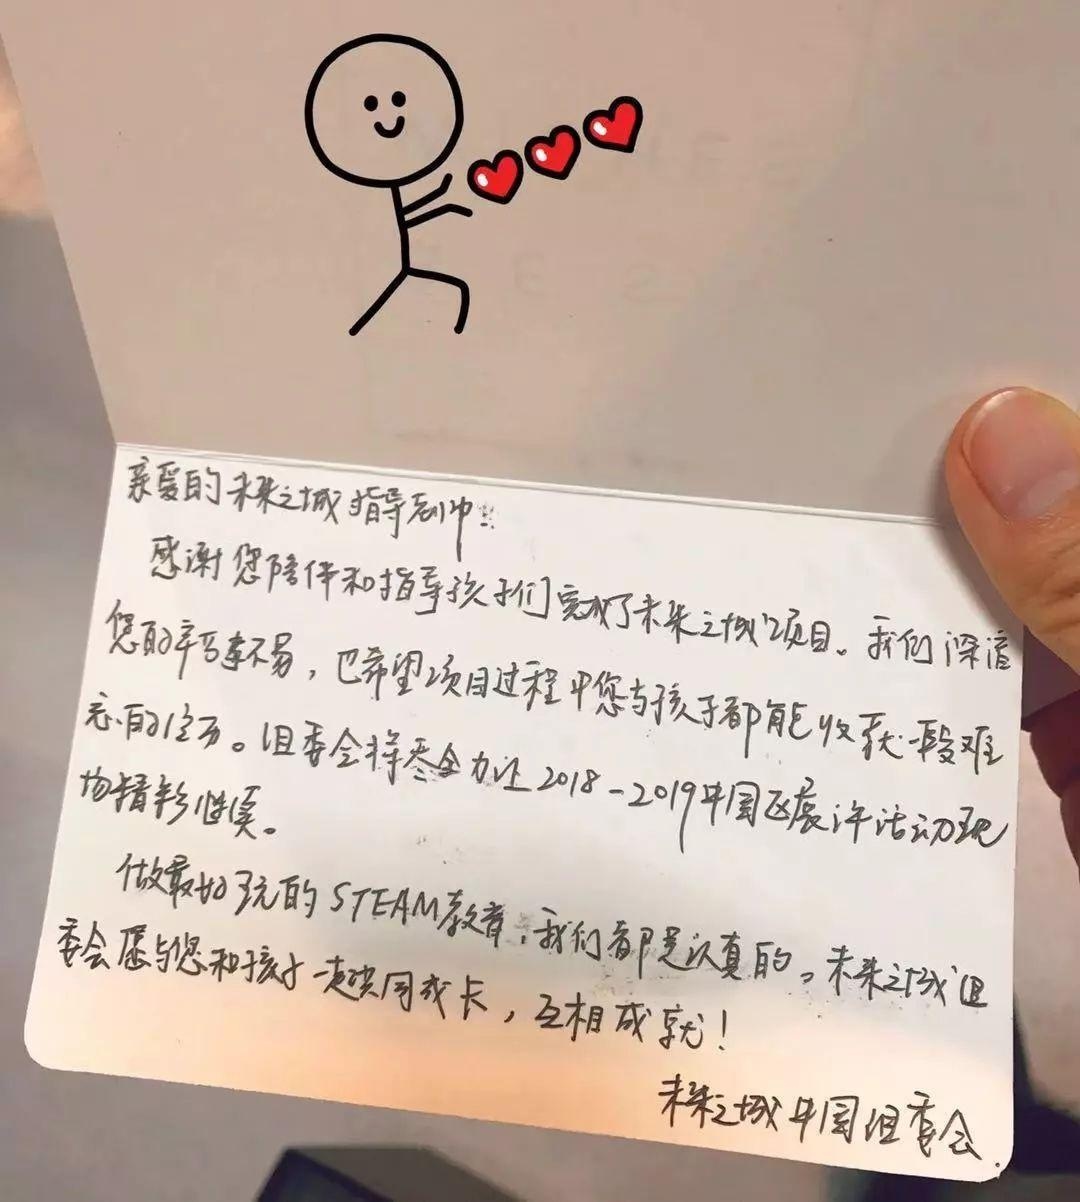 亲爱的未来之城指导老师:
感谢您陪伴和指导孩子们完成了未来之城项目。我们深谙
您的辛苦不易，也希望项目过程中您与孩子都能收获一段难
忘的经历。组委会将尽全力让2018-2019中国区展评活动现
场精彩继续。
做最好玩的STEAM教育，我们都是认真的。未来之城组
委会愿与您和孩子一起共同成长，互相成就！
未来之城中国组委会.